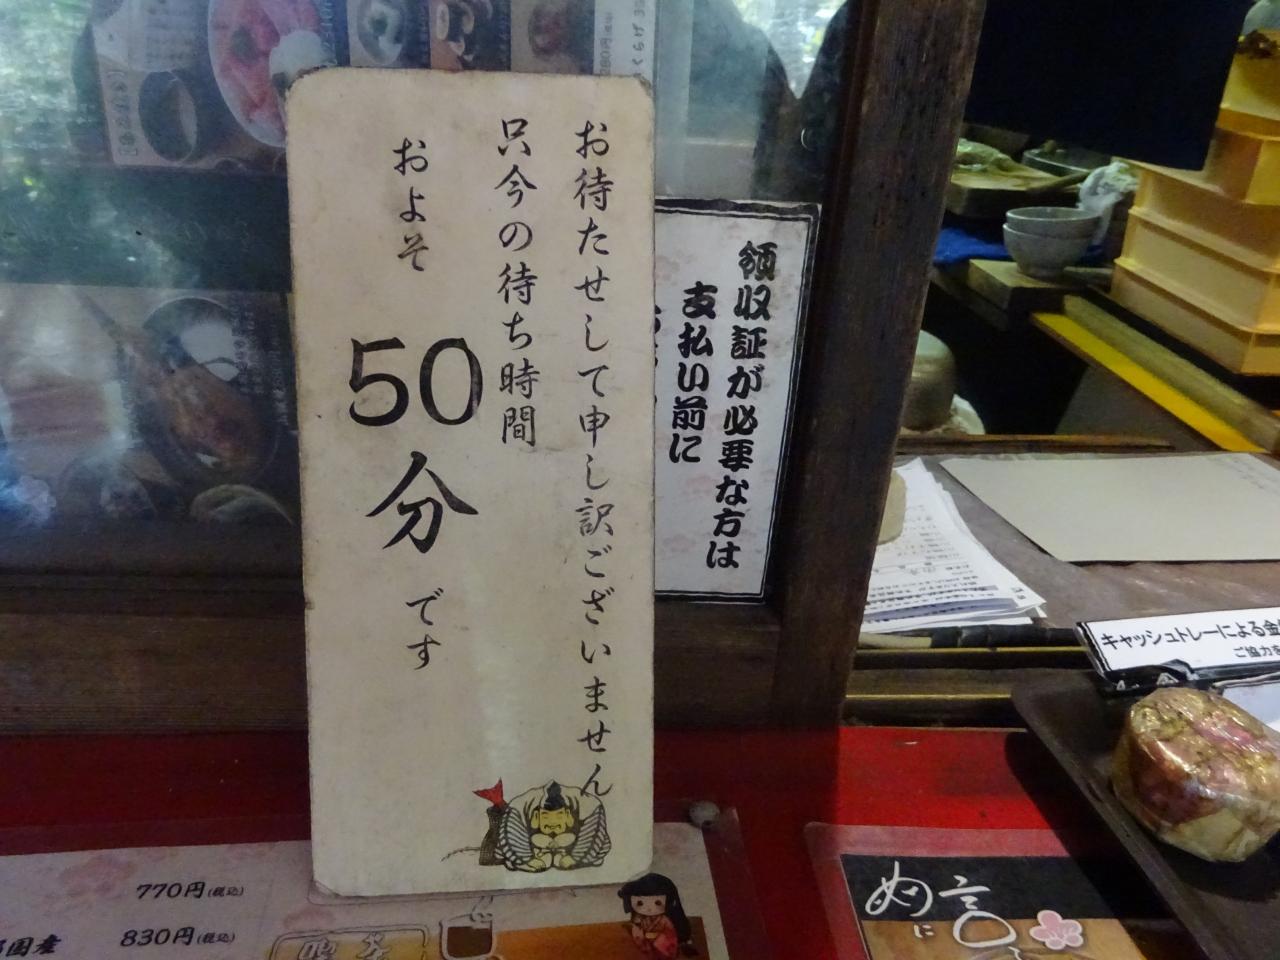 お待たせして申し訳ございません
只今の待ち時間
およそ
50分
です
領収証が必要な方は
支払い前に
キャッシュトレーによる金
ご協力を
770円(税込)
830円(税込)
国産